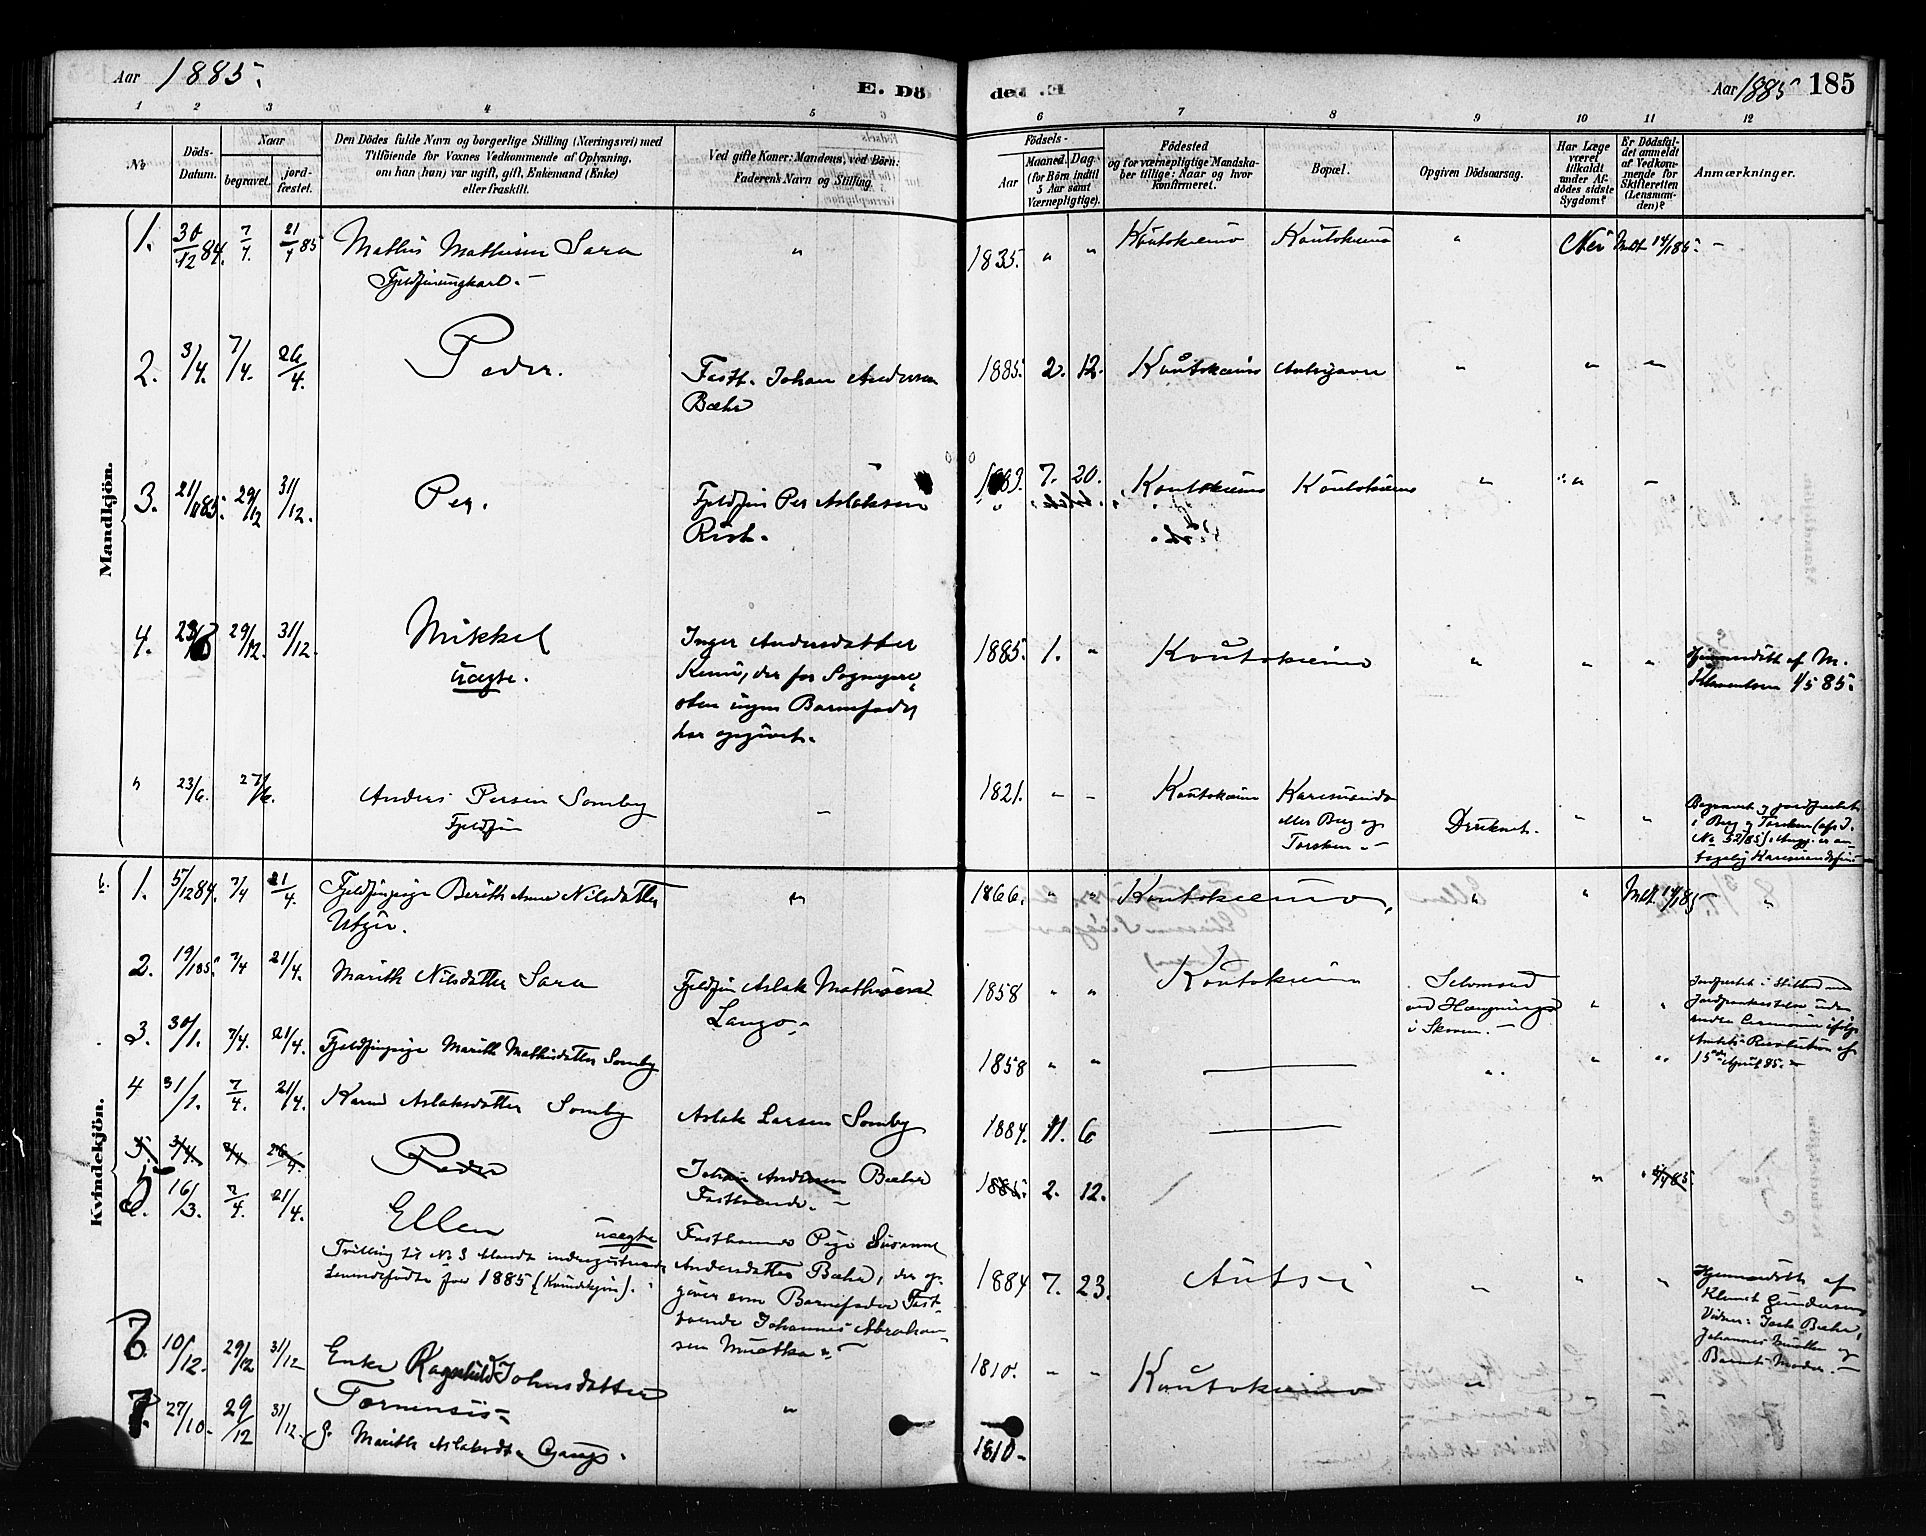 Aar 1885.
E. Dö
1 2 3 4 5 6
No
Döds-Datum.
Naar
begravet.
jord-fæstet.
Den Dödes fulde Navn og borgerlige Stilling (Næringsvei) med
Tilföiende for Voxnes Vedkommende af Oplysning,
om han (hun) var ugift, gift, Enkemand (Enke)
eller fraskilt.
Ved gifte Koner: Mandens, ved Börn:
Faderens Navn og Stilling.
Mandkjön.
1. 30/12 84. 7/4. 21/4 85 Mathis Mathisen Sara "
Fjeldfinungkarl.
2. 3/4. 7/4. 26/4. Peder. Fastb. Johan Andersen
Bæhr
3. 21/11 85. 29/12 31/12. Per. Fjeldfin Per Aslaksen
Rist.
4. 29/12. 31/12. Mikkel Inger Andersdatter
uægte.
der for Sognepræ-
sten ingen Barnefader
har opgivet.
" 23/6. 27/6. Anders Persen Somby
Fjeldfin
Kvindekjön.
1. 5/12 84. 7/4 21/4. Fjeldfinpige Berith Anne Nilsdatter "
Utsi.
2. 19/1 85. 7/4 21/4. Marith Nilsdatter Sara Fjeldfin Aslak Mathisen
Lango
3. 30/1. 7/4. 21/4. Fjeldfinpige Marith Mathisdatter Somby
4 31/1. 7/4. 21/4. Karen Aslaksdatter Somby Aslak Larsen Somby
5. 3/4. 7/4 26/4. Peder Johan Andersen Bæhr
Fastboende.
16/3. 7/4. 21/4. Ellen uægte Fastboende Pige Susanne
Tvilling til No 3 blandt
for 1885 (Kvindekjön).
Andersdatter Bæhr, der op-
giver som Barnefader Fast-
boende Johannes Abraham-
sen Muotka
6. 10/12. 29/12 31/12 Enke Ragnhild Johnsdatter
Tornensis
7. 27/10. 29/12 31/12. Marith Aslaksdt. Gaup. "
Aar 1885 185
6 7 8 9 10 11 12
Födsels-
Aar
Maaned. Dag.
(for Börn indtil
5 Aar samt
Værnepligtige).
Födested
og for værnepligtige Mandska-
ber tillige: Naar og hvor
konfirmeret.
Bopæl.
Opgiven Dödsaarsag.
Har Læge
været
tilkaldt
under Af-
dödes sidste
Sygdom?
Er Dödsfal-
det anmeldt
af Vedkom-
mende for
Skifteretten
(Lensman-
den)?
Anmærkninger.
1835. " " Koutokeino Koutokeino " Nei Mdt 14/1 85.
1885. 2. 12. Koutokeino " "
1883. 7. 20. Koutokeino Koutokeino " "
1885. 1. " Koutokeino " " " Hjemmedøbt af M.
Klemetsen 1/5 85.
1821. Koutokeino Karesuando
eller Berg og
Torsken.
Druknet. " " Begravet og jordfæstet
i Berg og Torsken (cfr J.
No 52/85)
1866. " " Koutokeino " " Mdt 14/1 85 "
1858 " " Koutokeino Selvmord
ved Hængning
i Skoven. " "
Jordfæstet i Stilhed
Resolution af
15de April 85.
1858 " " " "
1884. 11. 6
1885. 2. 12. "
1884 7. 23. Autsi " " " Hjemmedøbt af
Klemet Gundersen
Vidner: Bæhr,
Johannes og
Barnets Moder.
1810. Koutokeino "
1810